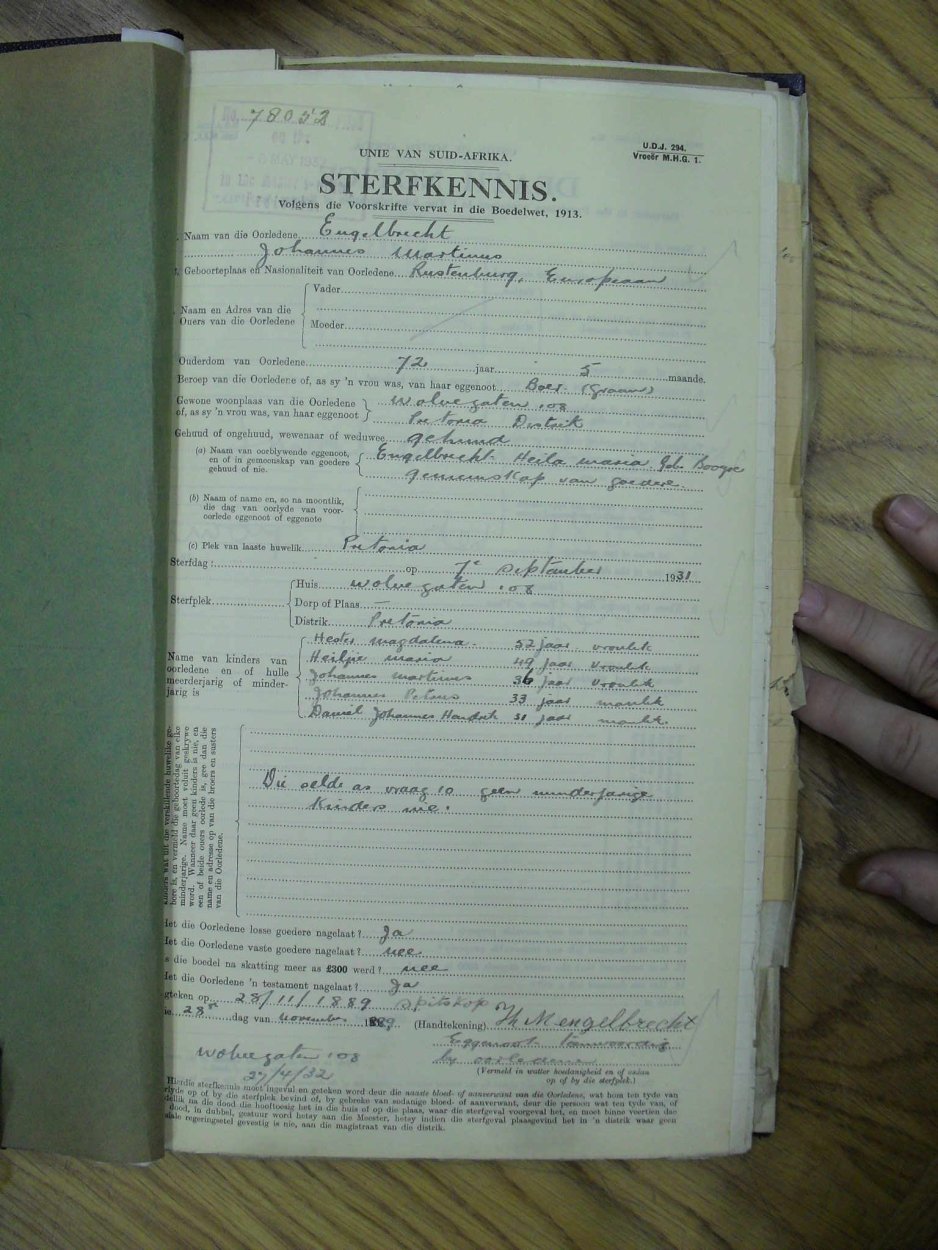 No. 78052
- 6 MAY 1932
U.D.J. 294.
Vroeër M.H.G. 1.
UNIE VAN SUID-AFRIKA.
STERFKENNIS.
Volgens die Voorskrifte vervat in die Boedelwet, 1913.
Naam van die Oorledene Engelbrecht
Johannes Martinus
Geboorteplaas en Nasionaliteit van Oorledene Rustenburg, Europeaan
Naam en Adres van die Ouers van die Oorledene
Vader
Moeder
Ouderdom van Oorledene 72 jaar 5 maande.
Beroep van die Oorledene of, as sy 'n vrou was, van haar eggenoot Boer (Graan)
Gewone woonplaas van die Oorledene of, as sy 'n vrou was, van haar eggenoot
Wolvegaten 108
Pretoria Distrik
Gehuud of ongehuud, wewenaar of weduwee gehuud
(a) Naam van oorblywende eggenoot, en of in gemeenskap van goedere gehuud of nie.
Engelbrecht Heila Maria Geb. Booyse
gemeinskap van goedere
(b) Naam of name en, so na moontlik, die dag van oorlyde van vooroorlede eggenoot of eggenote
(c) Plek van laaste huwelik Pretoria
Sterfdag: op 7e September 1931
Sterfplek
Huis wolvegaten 108
Dorp of Plaas —
Distrik Pretoria
Name van kinders van oorledene en of hulle meerderjarig of minderjarig is
Hester Magdalena 52 jaar vroulik
Heiljie Maria 49 jaar vroulik
Johannes Martinus 36 jaar vroulik
Johannes Petrus 33 jaar manlik
Daniel Johannes Hendrik 31 jaar manlik
minderjarige. Name moet voluit geskrywe word. Wanneer daar geen kinders is nie, en een of beide ouers oorlede is, gee dan die name en adresse op van die broers en susters van die Oorledene.
Die selde as vraag 10 geen minderjarige
Kinders nie.
Het die Oorledene losse goedere nagelaat? Ja
Het die Oorledene vaste goedere nagelaat? nee
Is die boedel na skatting meer as £300 werd? nee
Het die Oorledene 'n testament nagelaat? Ja
gteken op 28/11/1889 Spitskop
28e dag van November 1889 (Handtekening) H M engelbrecht
Eggenoot
by oorledene
(Vermeld in watter hoedanigheid en of ooian op of by die sterfplek.)
wolvegaten 108
27/4/32
Hierdie sterfkennis moet ingevul en geteken word deur die naaste bloed- of aanverwant van die Oorledene, wat hom ten tyde van
lyde op of by die sterfplek bevind of, by gebreke van sodanige bloed- of aanverwant, deur die persoon wat ten tyde van, of
dellik na die dood die hooftoesig het in die huis of op die plaas, waar die sterfgeval voorgeval het, en moet binne veertien dae
dood, in dubbel, gestuur word hetsy aan die Meester, hetsy indien die sterfgeval plaasgevind het in 'n distrik waar geen
regeringsetel gevestig is nie, aan die magistraat van die distrik.